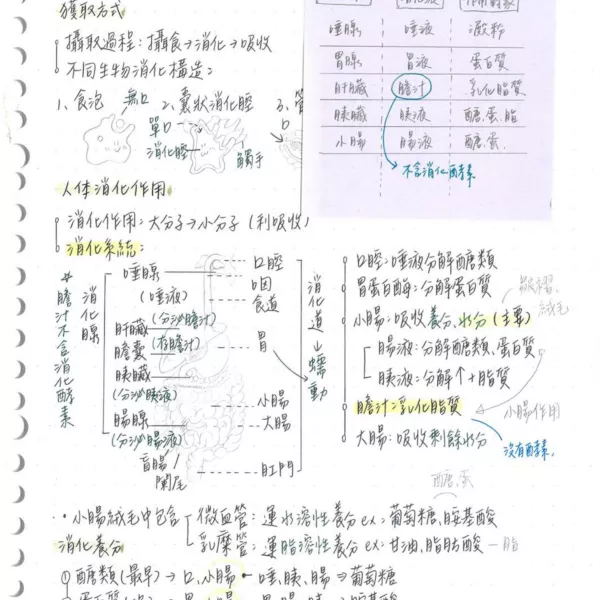 獲取方式
攝取過程：攝食→消化→吸收
不同生物消化構造：
1、食泡 無口 2、囊狀消化腔 3、管
單口
口
消化腔
觸手
唾腺 唾液 澱粉
胃腺 胃液 蛋白質
肝臟 膽汁 乳化脂質
胰臟 胰液 醣.蛋.脂
小腸 腸液 醣.蛋.
不含消化酵素
人体消化作用
消化作用：大分子→小分子（利吸收）
消化系統：
*膽汁不含消化酵素
消化腺
唾腺
（唾液）
（分泌膽汁）
肝臟
膽囊
（存膽汁）
胰臟
（分泌胰液）
腸腺
（分泌腸液）
盲腸/
闌尾
口腔
咽
食道
胃
小腸
大腸
肛門
消化道→蠕動
口腔：唾液分解醣類
胃蛋白酶：分解蛋白質
小腸：吸收養分.水分（主要）
絨毛
腸液：分解醣類、蛋白質
胰液：分解↑+脂質
膽汁：乳化脂質
小腸作用
沒有酵素.
大腸：吸收剩餘水分
醣.蛋
·小腸絨毛中包含
微血管：運水溶性養分 ex：葡萄糖、胺基酸
乳糜管：運脂溶性養分 ex：甘油、脂肪酸－脂
消化養分
醣類（最早）→口、小腸·唾、胰、腸⇒葡萄糖